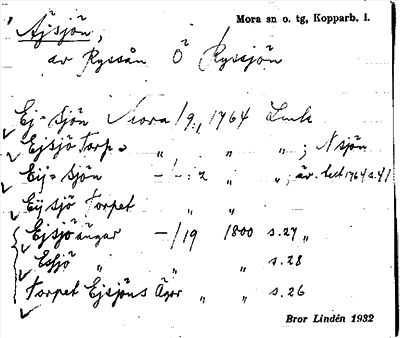 Mora sn o. tg, Kopparb. l.
Äjsjön,
av Ryssån Ö Ryssjön
Ej-sjön Mora /9:, 1764 Lmh
Ejsjö Torp " " " ; N sjön
Eij-sjön -/-:2 " " ; äv. let 1764 s.41
Eÿ sjö Torpet " "
Ejsjöängar -/19 1800 s.27 "
Essjö " " s.28
Torpet Ejsjöns Ägor " " s.26
Bror Lindén 1932